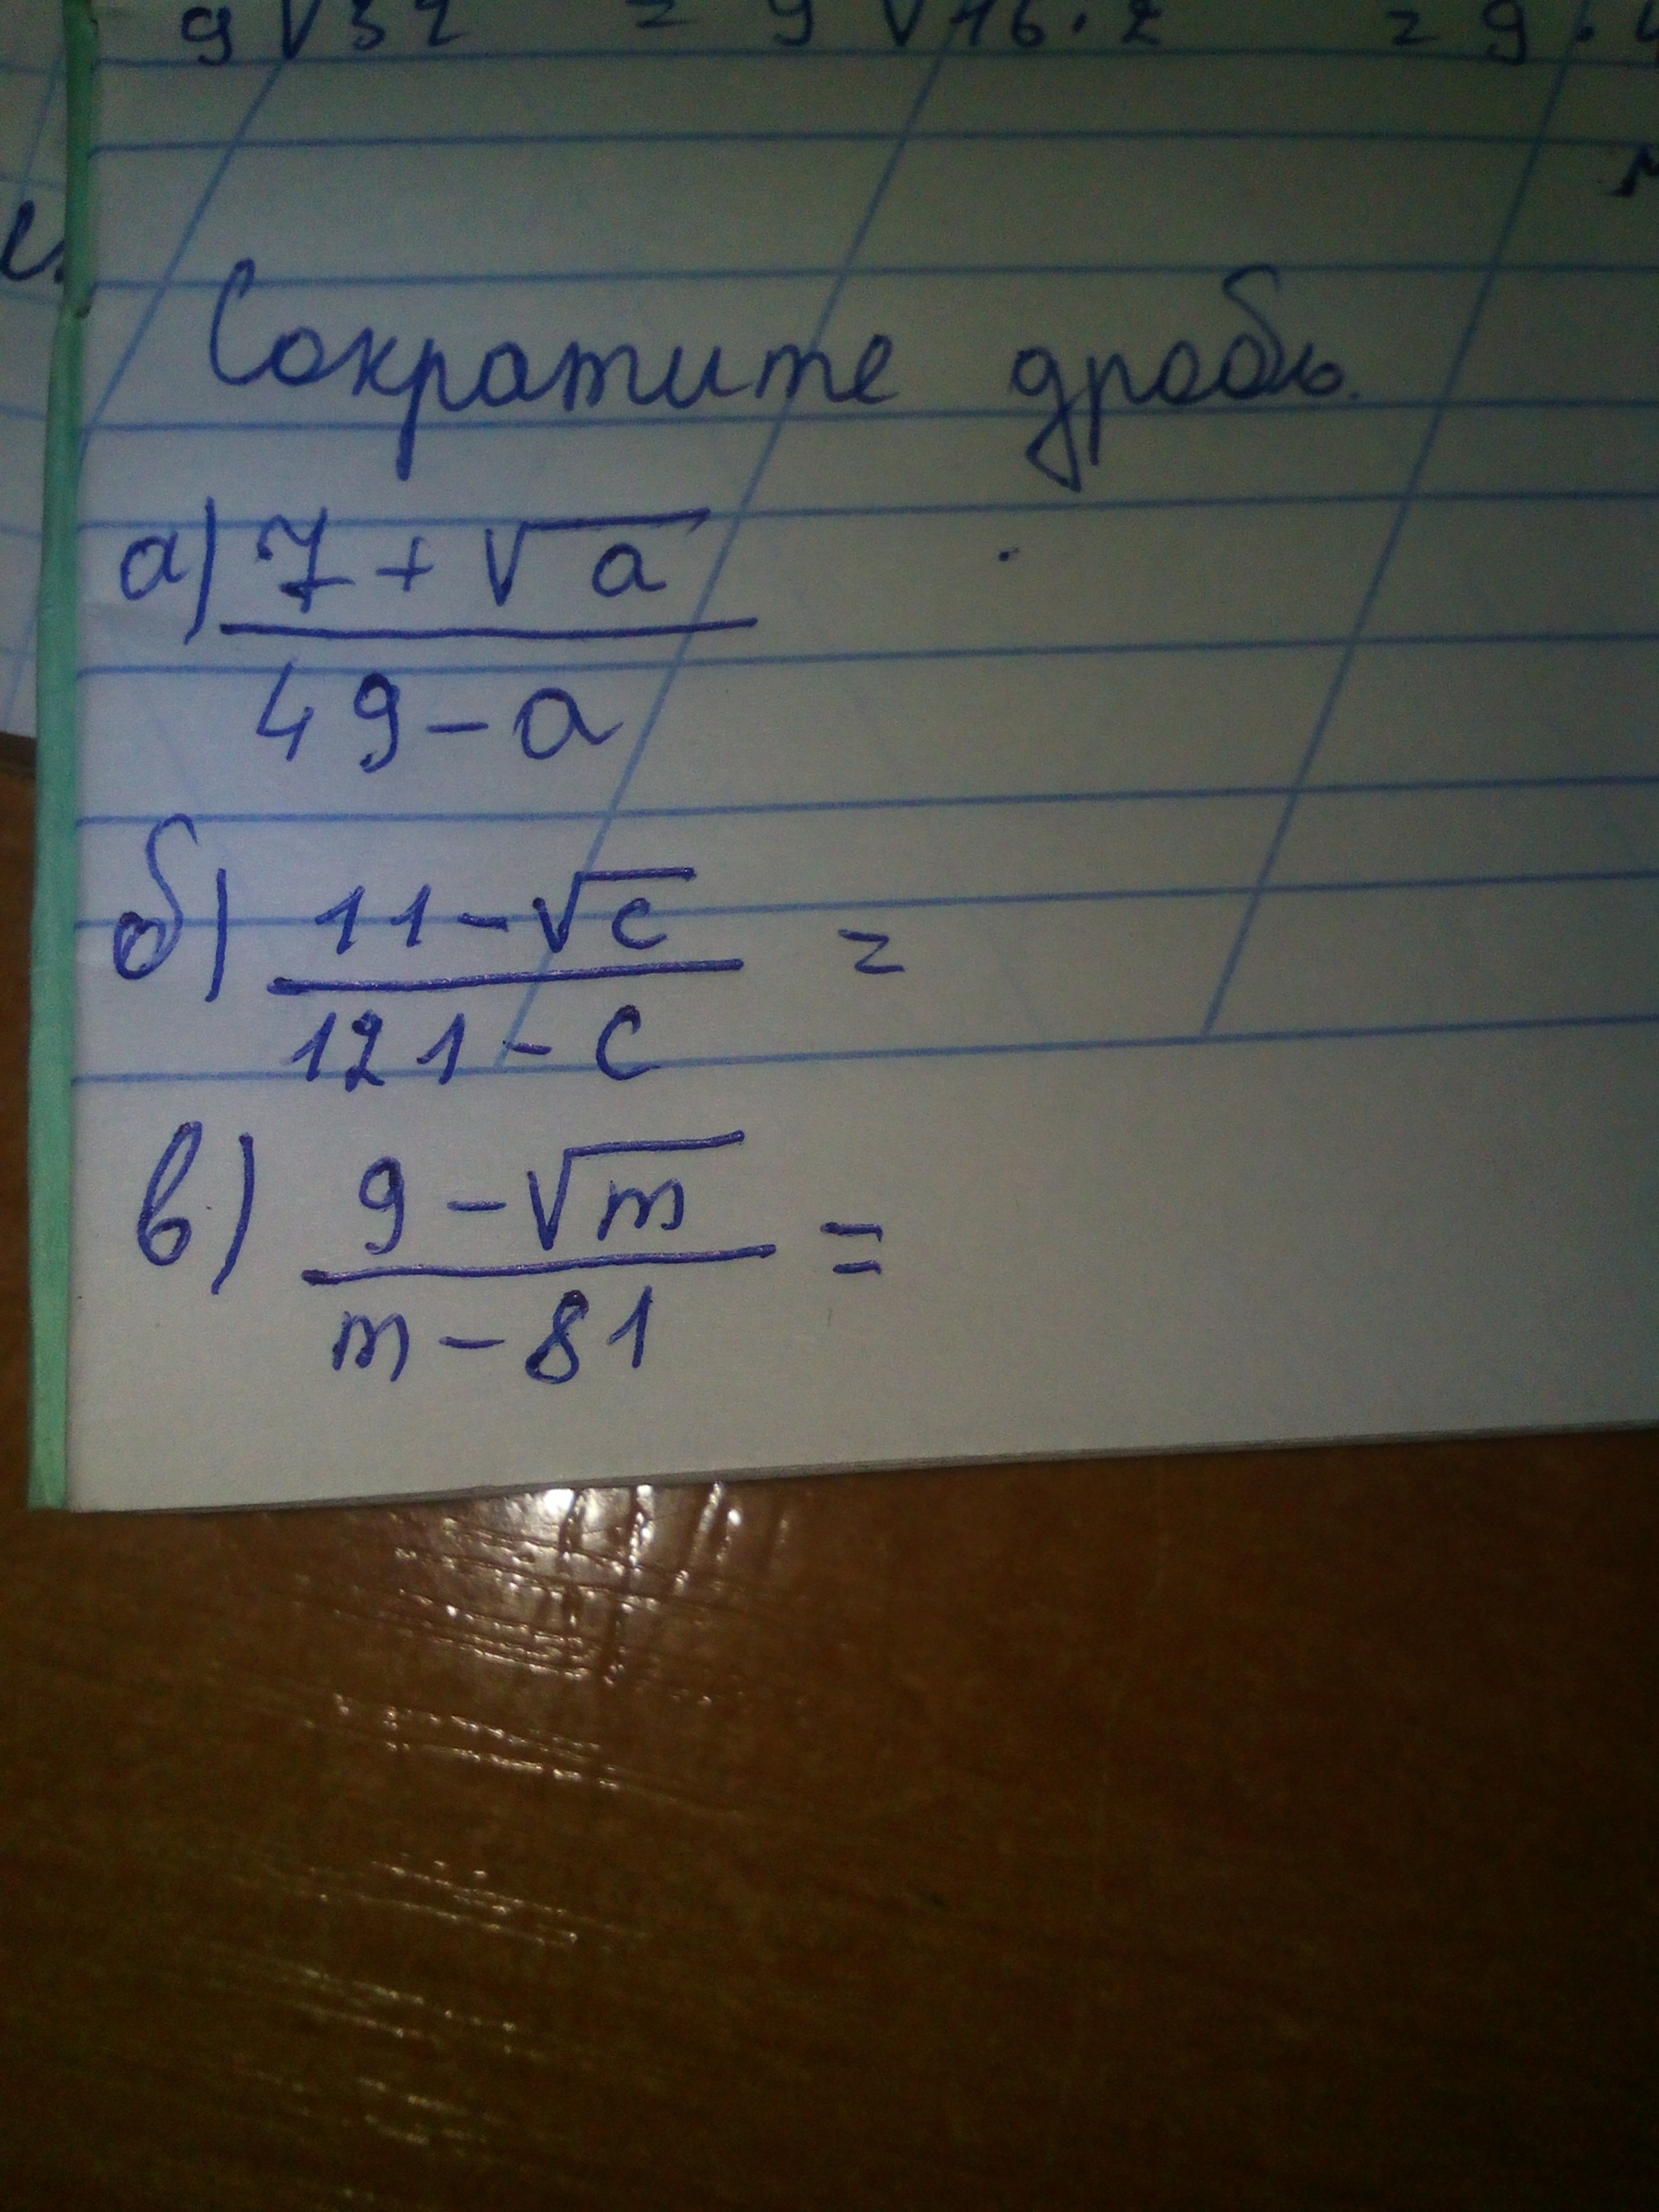 9√32 = 9√16·2 = 9·4
Сократите дробь.
а) 7+√a
49-a
б) 11-√c =
121-c
в) 9-√m =
m-81